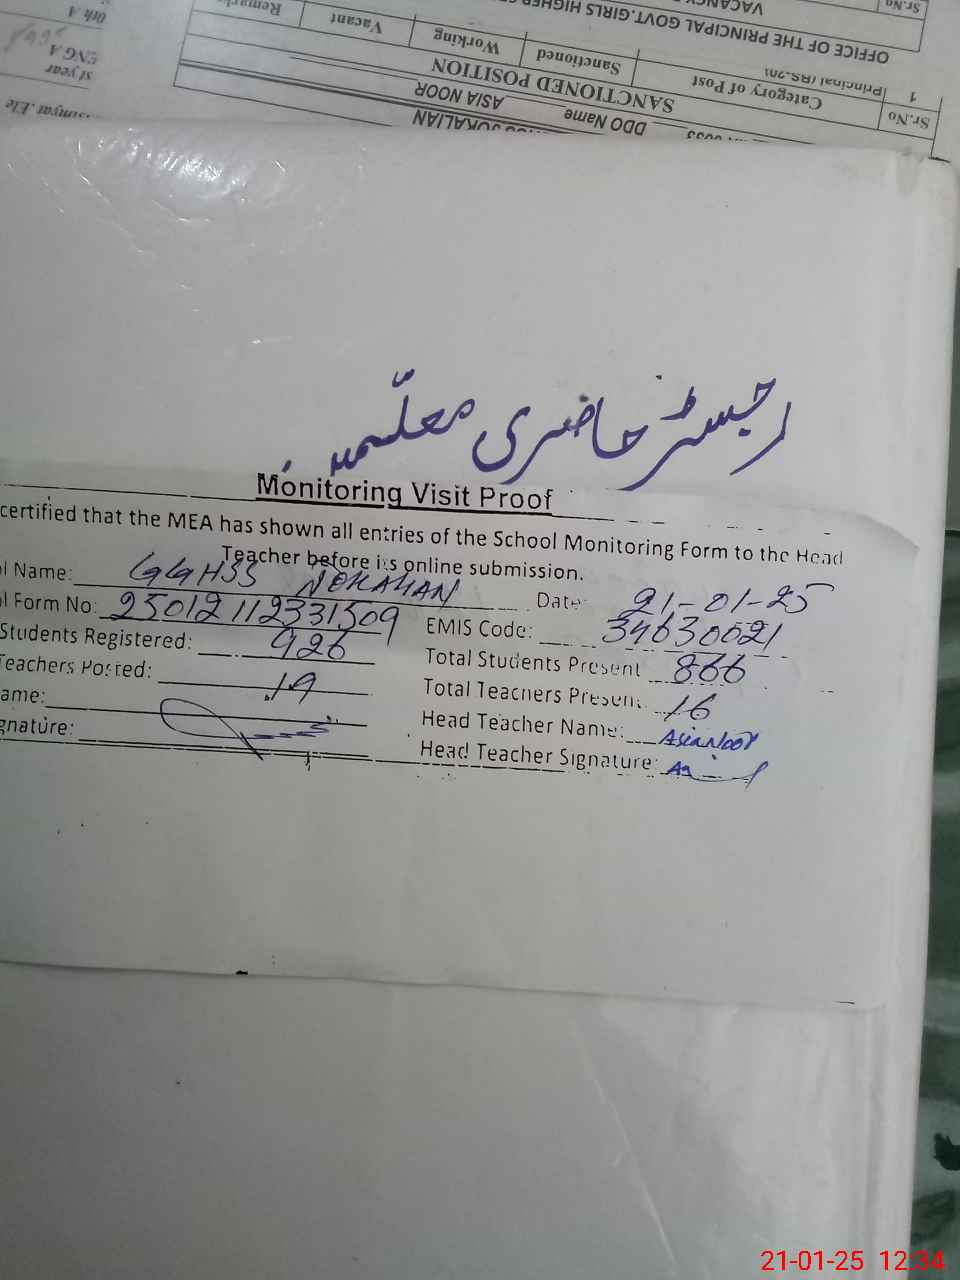 Sr.No
VACANCY
OFFICE OF THE PRINCIPAL GOVT.GIRLS HIGHER
Remarks
Vacant
Working
Sanctioned
Category of Post
Sr.No
1
Principal (BS.20)
SANCTIONED POSITION
DDO Name ASIA NOOR
JOKALIAN
ENG A
st year
رجسٹر حاضری معلمین
Monitoring Visit Proof
certified that the MEA has shown all entries of the School Monitoring Form to the Head
Teacher before its online submission.
l Name: GGHSS JOKALIAN Date: 21-01-25
l Form No: 25012112331509 EMIS Code: 34630021
Students Registered: 926 Total Students Present 866
Teachers Posted: 19 Total Teachers Present: 16
ame: Head Teacher Name: Asia Noor
gnature: Head Teacher Signature:
21-01-25 12:34